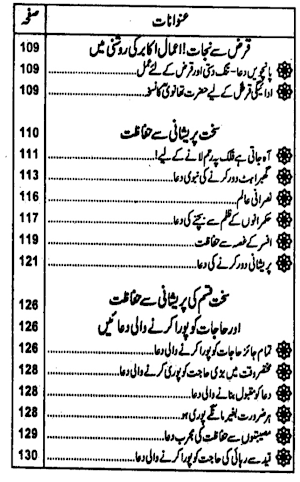 عنوانات صفحہ
قرض سے نجات! اعمال اکابر کی روشنی میں 109
پانچویں دعا - تنگ دستی اور قرض کے لئے عمل 109
ادائیگی قرض کے لیے حضرت تھانویؒ کا نسخہ 109
سخت پریشانی سے حفاظت 110
آہ جاتی ہے فلک پہ رحم لانے کے لیے! 111
گھبراہٹ دور کرنے کی نبوی دعا 113
نصرانی عالم 116
حکمرانوں کے ظلم سے بچنے کی دعا 117
افسر کے غصہ سے حفاظت 119
پریشانی دور کرنے کی دعا 121
سخت قسم کی پریشانی سے حفاظت 126
اور حاجات کو پورا کرنے والی دعائیں 126
تمام جائز حاجات کو پورا کرنے والی دعا 126
مختصر وقت میں بڑی حاجت کو پوری کرنے والی دعا 128
دعا کو مقبول بنانے والی دعا 128
ہر ضرورت بغیر مانگے پوری ہو 128
مصیبتوں سے حفاظت کی مجرب دعا 129
قید سے رہائی کی حاجت کو پورا کرنے والی دعا 130